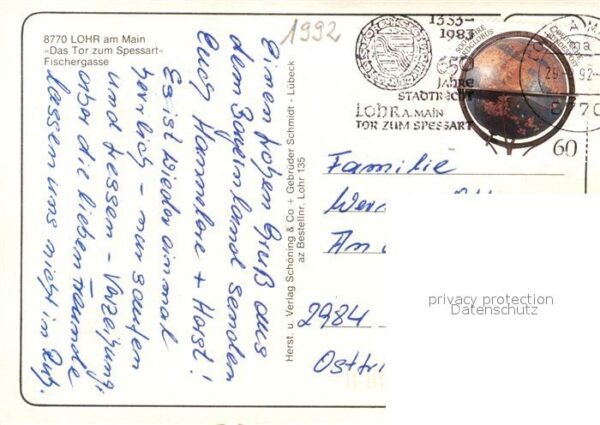 8770 LOHR am Main
»Das Tor zum Spessart«
Fischergasse
1992
1333-
1983
650
Jahre
STADTRECHT
LOHR A. MAIN
TOR ZUM SPESSART
500 JAHRE
ERDGLOBUS
60
29.
92-
8770
Einen frohen Gruß aus
dem Bayernland senden
Euch Hannelore + Horst!
Es ist wieder einmal
herrlich - nur saufen
und fressen - Verzeihung,
aber die lieben Freunde
lassen uns nicht in Ruh.
Herst. u. Verlag Schöning & Co + Gebrüder Schmidt - Lübeck
az Bestellnr. Lohr 135
Familie
Wer
An
2984
Osttr
privacy protection
Datenschutz